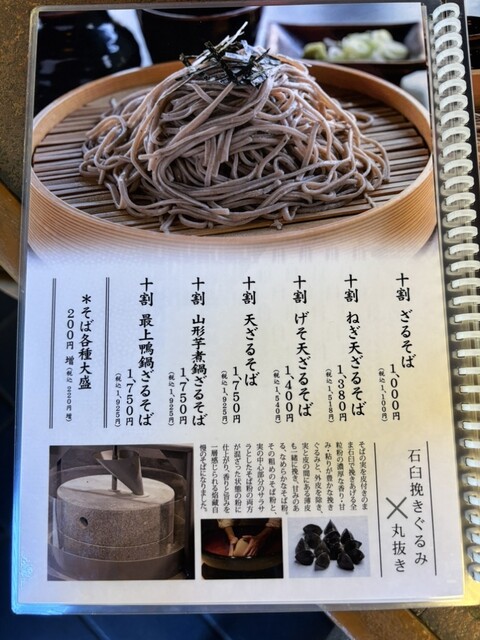 十割 ざるそば
1,000円
(税込 1,100円)
十割 ねぎ天ざるそば
1,380円
(税込 1,518円)
十割 げそ天ざるそば
1,400円
(税込 1,540円)
十割 天ざるそば
1,750円
(税込 1,925円)
十割 山形芋煮鍋ざるそば
1,750円
(税込 1,925円)
十割 最上鴨鍋ざるそば
1,750円
(税込 1,925円)
*そば各種大盛
200円 増(税込 220円増)
石臼挽きぐるみ
×
丸抜き
そばの実を皮付きのま
ま石臼で挽きあげる全
粒粉の濃厚な香り・甘
み・粘りが豊かな挽き
ぐるみと、外皮を除き、
実と皮の間にある薄皮
も一緒に挽き、甘みのあ
る、なめらかなそば粉。
その粗めのそば粉と、
実の中心部分のサラサ
ラとしたそば粉の両方
が混ざった状態の粉に
仕上がり、香りと旨みを
一層感じられる
慢のそばとなりました。